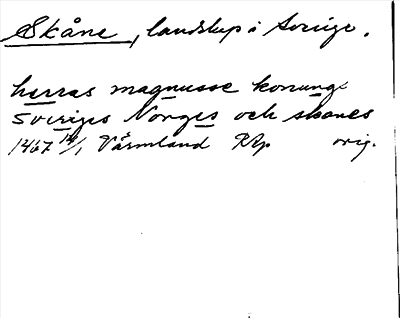 Skåne, landskap i Sverige.
herras magnusse konungs
Sveriges Norges och skanes
1467 14/1 Värmland RAp orig.